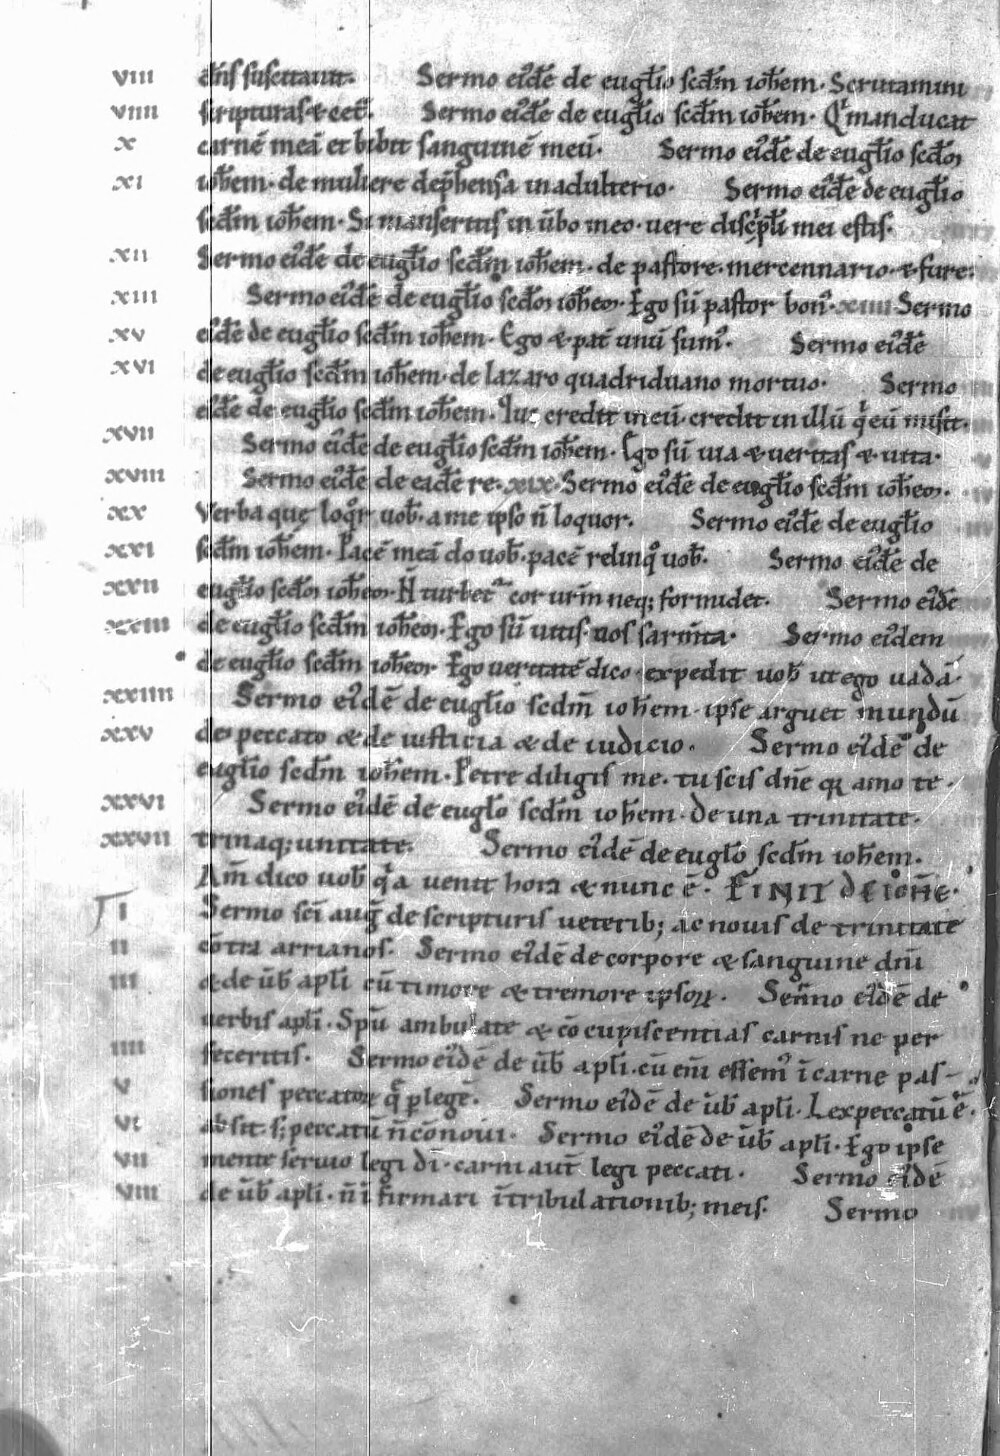 VIII dn̄s suscitauit. Sermo eiꝰdē de eugl̄io scdm̄ ioh̄em. Scrutamini
VIIII scripturas & cet̄. Sermo eiꝰdē de eugl̄io scdm̄ ioh̄em. Qͥ manducat
X carnē meā et bibit sanguinē meū. Sermo eiꝰdē de eugl̄io scdm̄
XI ioh̄em. de muliere dep̄hensa in adulterio. Sermo eiꝰdē de eugl̄io
scdm̄ ioh̄em. Si manseritis in ūbo meo. uere discip̄li mei estis.
XII Sermo eiꝰdē de eugl̄io scdm̄ ioh̄em. de pastore. mercennario. & fure.
XIII Sermo eiꝰdē de eugl̄io scdm̄ ioh̄em. Ego sū pastor bonꝰ. XIIII Sermo
XV eiꝰdē de eugl̄io scdm̄ ioh̄em. Ego & pat̄ unū sumꝰ. Sermo eiꝰdē
XVI de eugl̄io scdm̄ ioh̄em. de lazaro quadriduano mortuo. Sermo
eiꝰdē de eugl̄io scdm̄ ioh̄em. Qui credit in eū. credit in illū qͥ eū misit.
XVII Sermo eiꝰdē de eugl̄io scdm̄ ioh̄em. Ego sū uia & ueritas & uita.
XVIII Sermo eiꝰdē de eadē re. XIX. Sermo eiꝰdē de eugl̄io scdm̄ ioh̄em.
XX Verba quę loqͦr uob̄. a me ipso n̄ loquor. Sermo eiꝰdē de eugl̄io
XXI scdm̄ ioh̄em. Pacē meā do uob̄. pacē relinqͦ uob̄. Sermo eiꝰdē de
XXII eugl̄io scdm̄ ioh̄em. N̄ turbet᷑ cor ur̄m neq; formidet. Sermo eiꝰdē
XXIII de eugl̄io scdm̄ ioh̄em. Ego sū uitis. uos sarm̄ta. Sermo eiꝰdem
de eugl̄io scdm̄ ioh̄em Ego ueritatē dico. expedit uob̄ ut ego uadā.
XXIIII Sermo eiꝰdē de eugl̄io scdm̄ ioh̄em. ipse arguet mundū
XXV de peccato & de iusticia & de iudicio. Sermo eiꝰdē de
eugl̄io scdm̄ ioh̄em. Petre diligis me. tu scis dn̄e qꝛ amo te.
XXVI Sermo eiꝰdē de eugl̄o scdm̄ ioh̄em. De una trinitate.
XXVII trinaq; unitate. Sermo eiꝰdē de eugl̄o scdm̄ ioh̄em.
Am̄ dico uob̄ qͥa uenit hora & nunc ē. FINIT DE IOH̄E.
I Sermo sc̄i auḡ de scripturis ueterib; ac nouis de trinitate
II cōtra arrianos. Sermo eiꝰdē de corpore & sanguine dn̄i
III & de ūb̄ apl̄i cū timore & tremore ipsoꝝ. Sermo eiꝰdē de
uerbis apl̄i. Spū ambulate & cōcupiscentias carnis ne per
IIII feceritis. Sermo eiꝰdē de ūb̄ apl̄i. cū eni̅ essemꝰ ī carne pas-
V siones peccatoꝝ qͣ p̲ legē. Sermo eiꝰdē de ūb̄ apl̄i. Lex peccatū ē.
VI absit. s; peccatū n̄ cōnoui. Sermo eiꝰdē de ūb̄ apl̄i. Ego ipse
VII mente seruio legi di̅. carni aut̄ legi peccati. Sermo eiꝰdē
VIII de ūb̄ apl̄i. n̄ ī firmari ī tribulationib; meis. Sermo